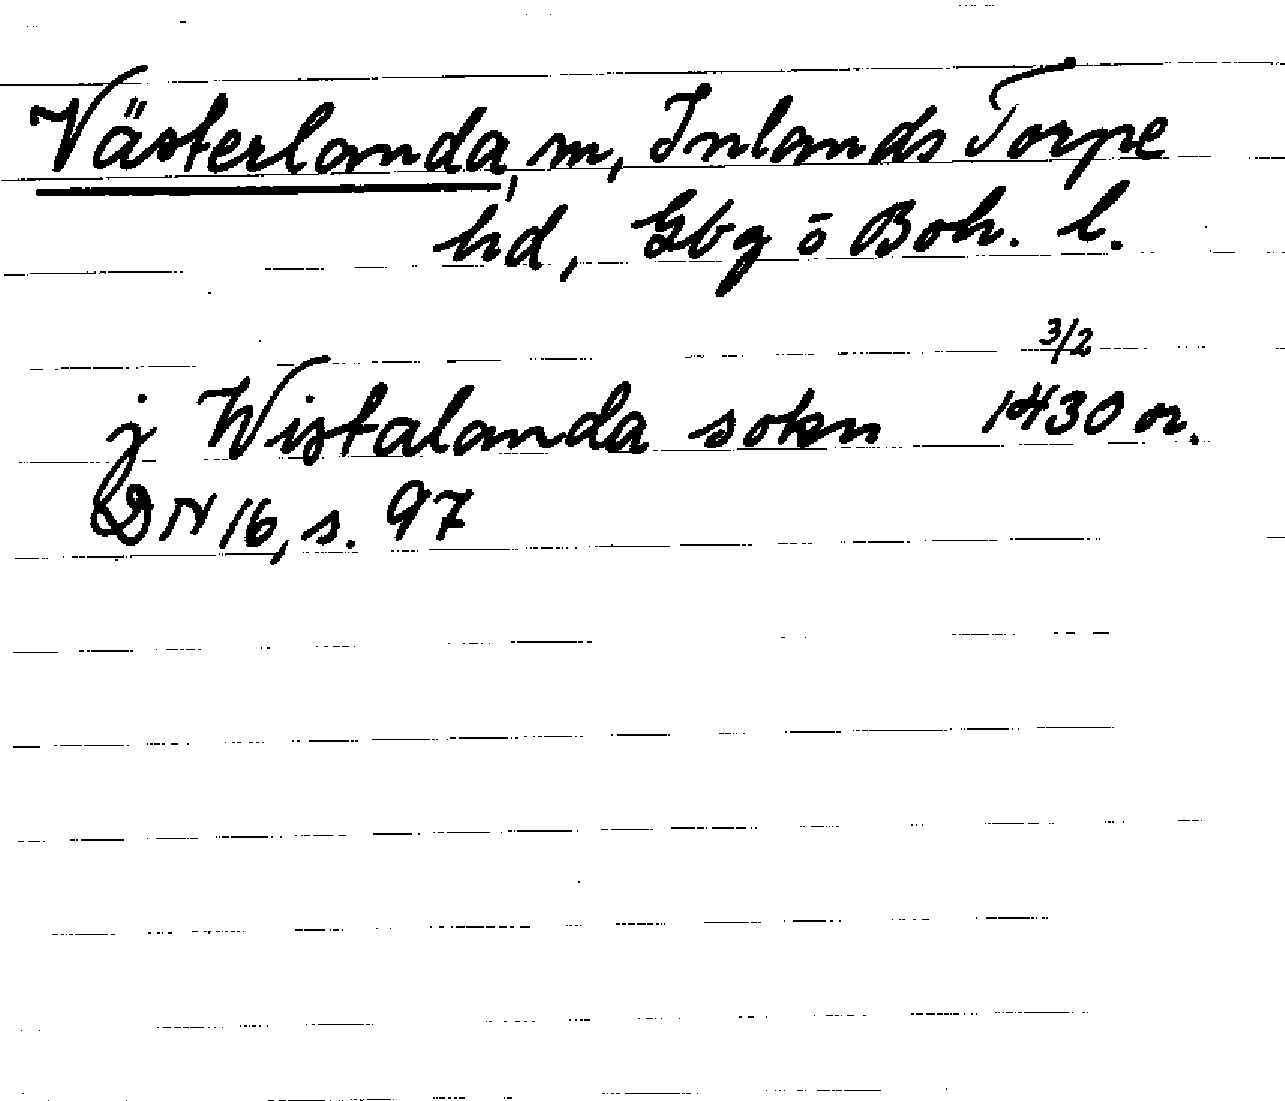 Västerlanda, sn, Inlands Torpe
hd, Gbg o Boh. l.
3/2
j Wistalanda sokn 1430 or.
DN 16, s. 97